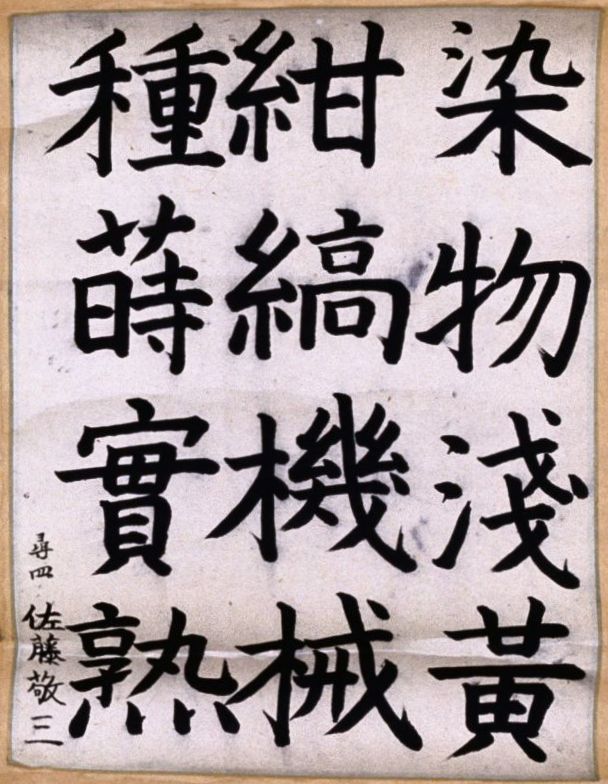 染物淺黃
紺縞機械
種蒔實熟
尋四 佐藤敬三